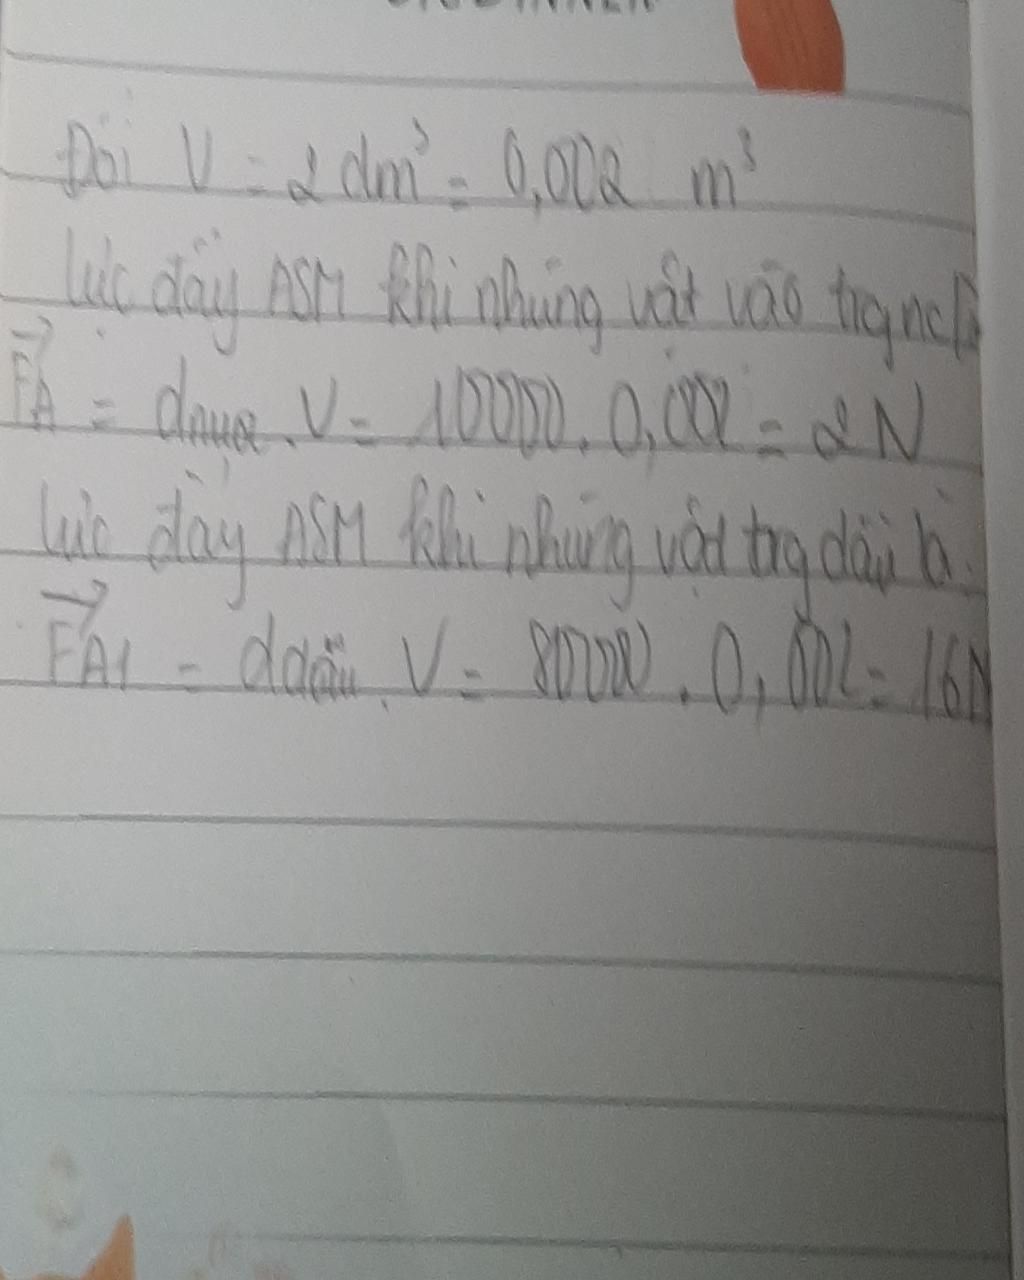 Đổi V = 2 dm³ = 0,002 m³
Lực đẩy ASM khi nhúng vật vào trg nc là
FA = dnước . V = 10000 . 0,002 = 2 N
Lực đẩy ASM khi nhúng vật trg dầu là
FA1 = ddầu . V = 8000 . 0,002 = 16N